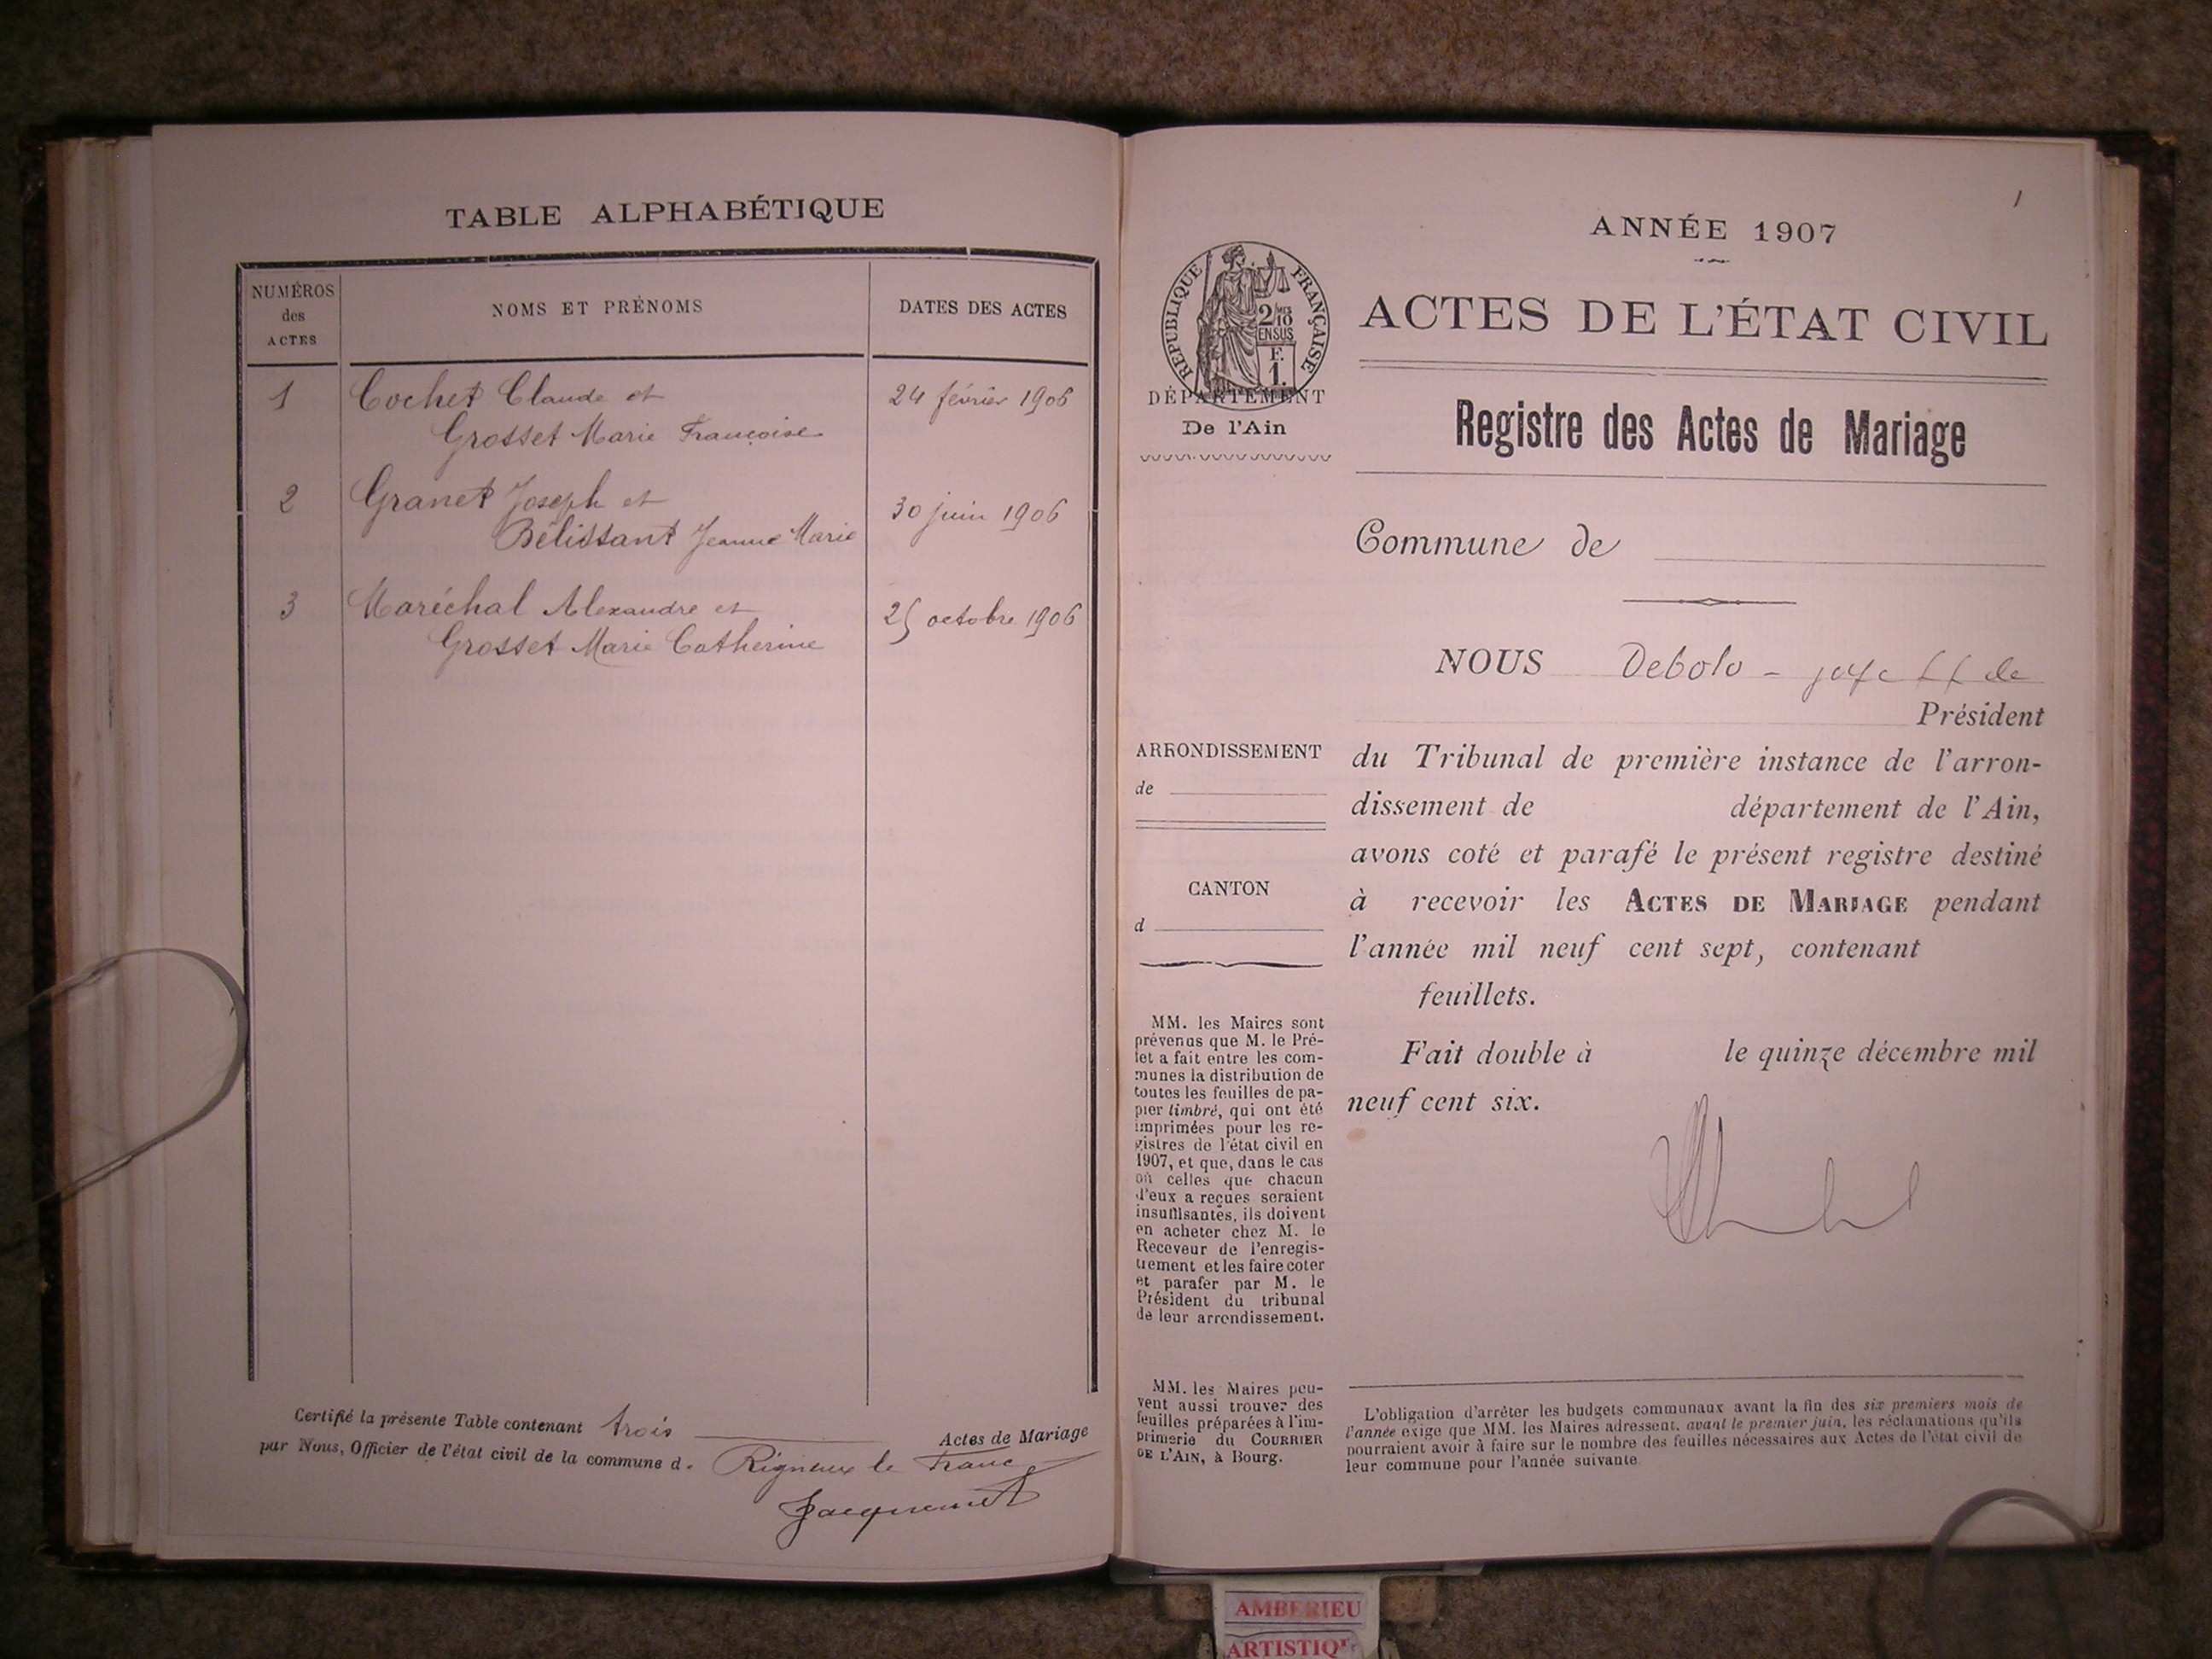 TABLE ALPHABÉTIQUE
NUMÉROS
des
ACTES
NOMS ET PRÉNOMS
DATES DES ACTES
1 Cochet Claude et 24 février 1906
Grosset Marie Françoise
2 Granet Joseph et
Bélissant Jeanne Marie 30 juin 1906
3 Maréchal Alexandre et 25 octobre 1906
Grosset Marie Catherine
Certifié la présente Table contenant trois Actes de Mariage
par Nous, Officier de l'état civil de la commune d. Rigneux le Franc
Jacquemet
1
ANNÉE 1907
RÉPUBLIQUE FRANÇAISE
2/10 MES
EN SUS
F.
1.
DÉPARTEMENT
De l'Ain
ACTES DE L'ÉTAT CIVIL
Registre des Actes de Mariage
Commune de
NOUS Debolo
Président
du Tribunal de première instance de l'arron-
dissement de département de l'Ain,
avons coté et parafé le présent registre destiné
à recevoir les ACTES DE MARIAGE pendant
l'année mil neuf cent sept, contenant
feuillets.
Fait double à le quinze décembre mil
neuf cent six.
ARRONDISSEMENT
de
CANTON
d
MM. les Maires sont
prévenus que M. le Pré-
fet a fait entre les com-
munes la distribution de
toutes les feuilles de pa-
pier timbré, qui ont été
imprimées pour les re-
gistres de l'état civil en
1907, et que, dans le cas
où celles que chacun
d'eux a reçues seraient
insuffisantes, ils doivent
en acheter chez M. le
Receveur de l'enregis-
trement et les faire coter
et parafer par M. le
Président du tribunal
de leur arrondissement.
MM. les Maires peu-
vent aussi trouver des
feuilles préparées à l'im-
primerie du COURRIER
DE L'AIN, à Bourg.
L'obligation d'arrêter les budgets communaux avant la fin des six premiers mois de
l'année exige que MM. les Maires adressent, avant le premier juin, les réclamations qu'ils
pourraient avoir à faire sur le nombre des feuilles nécessaires aux Actes de l'état civil de
leur commune pour l'année suivante.
AMBERIEU
ARTISTIQU